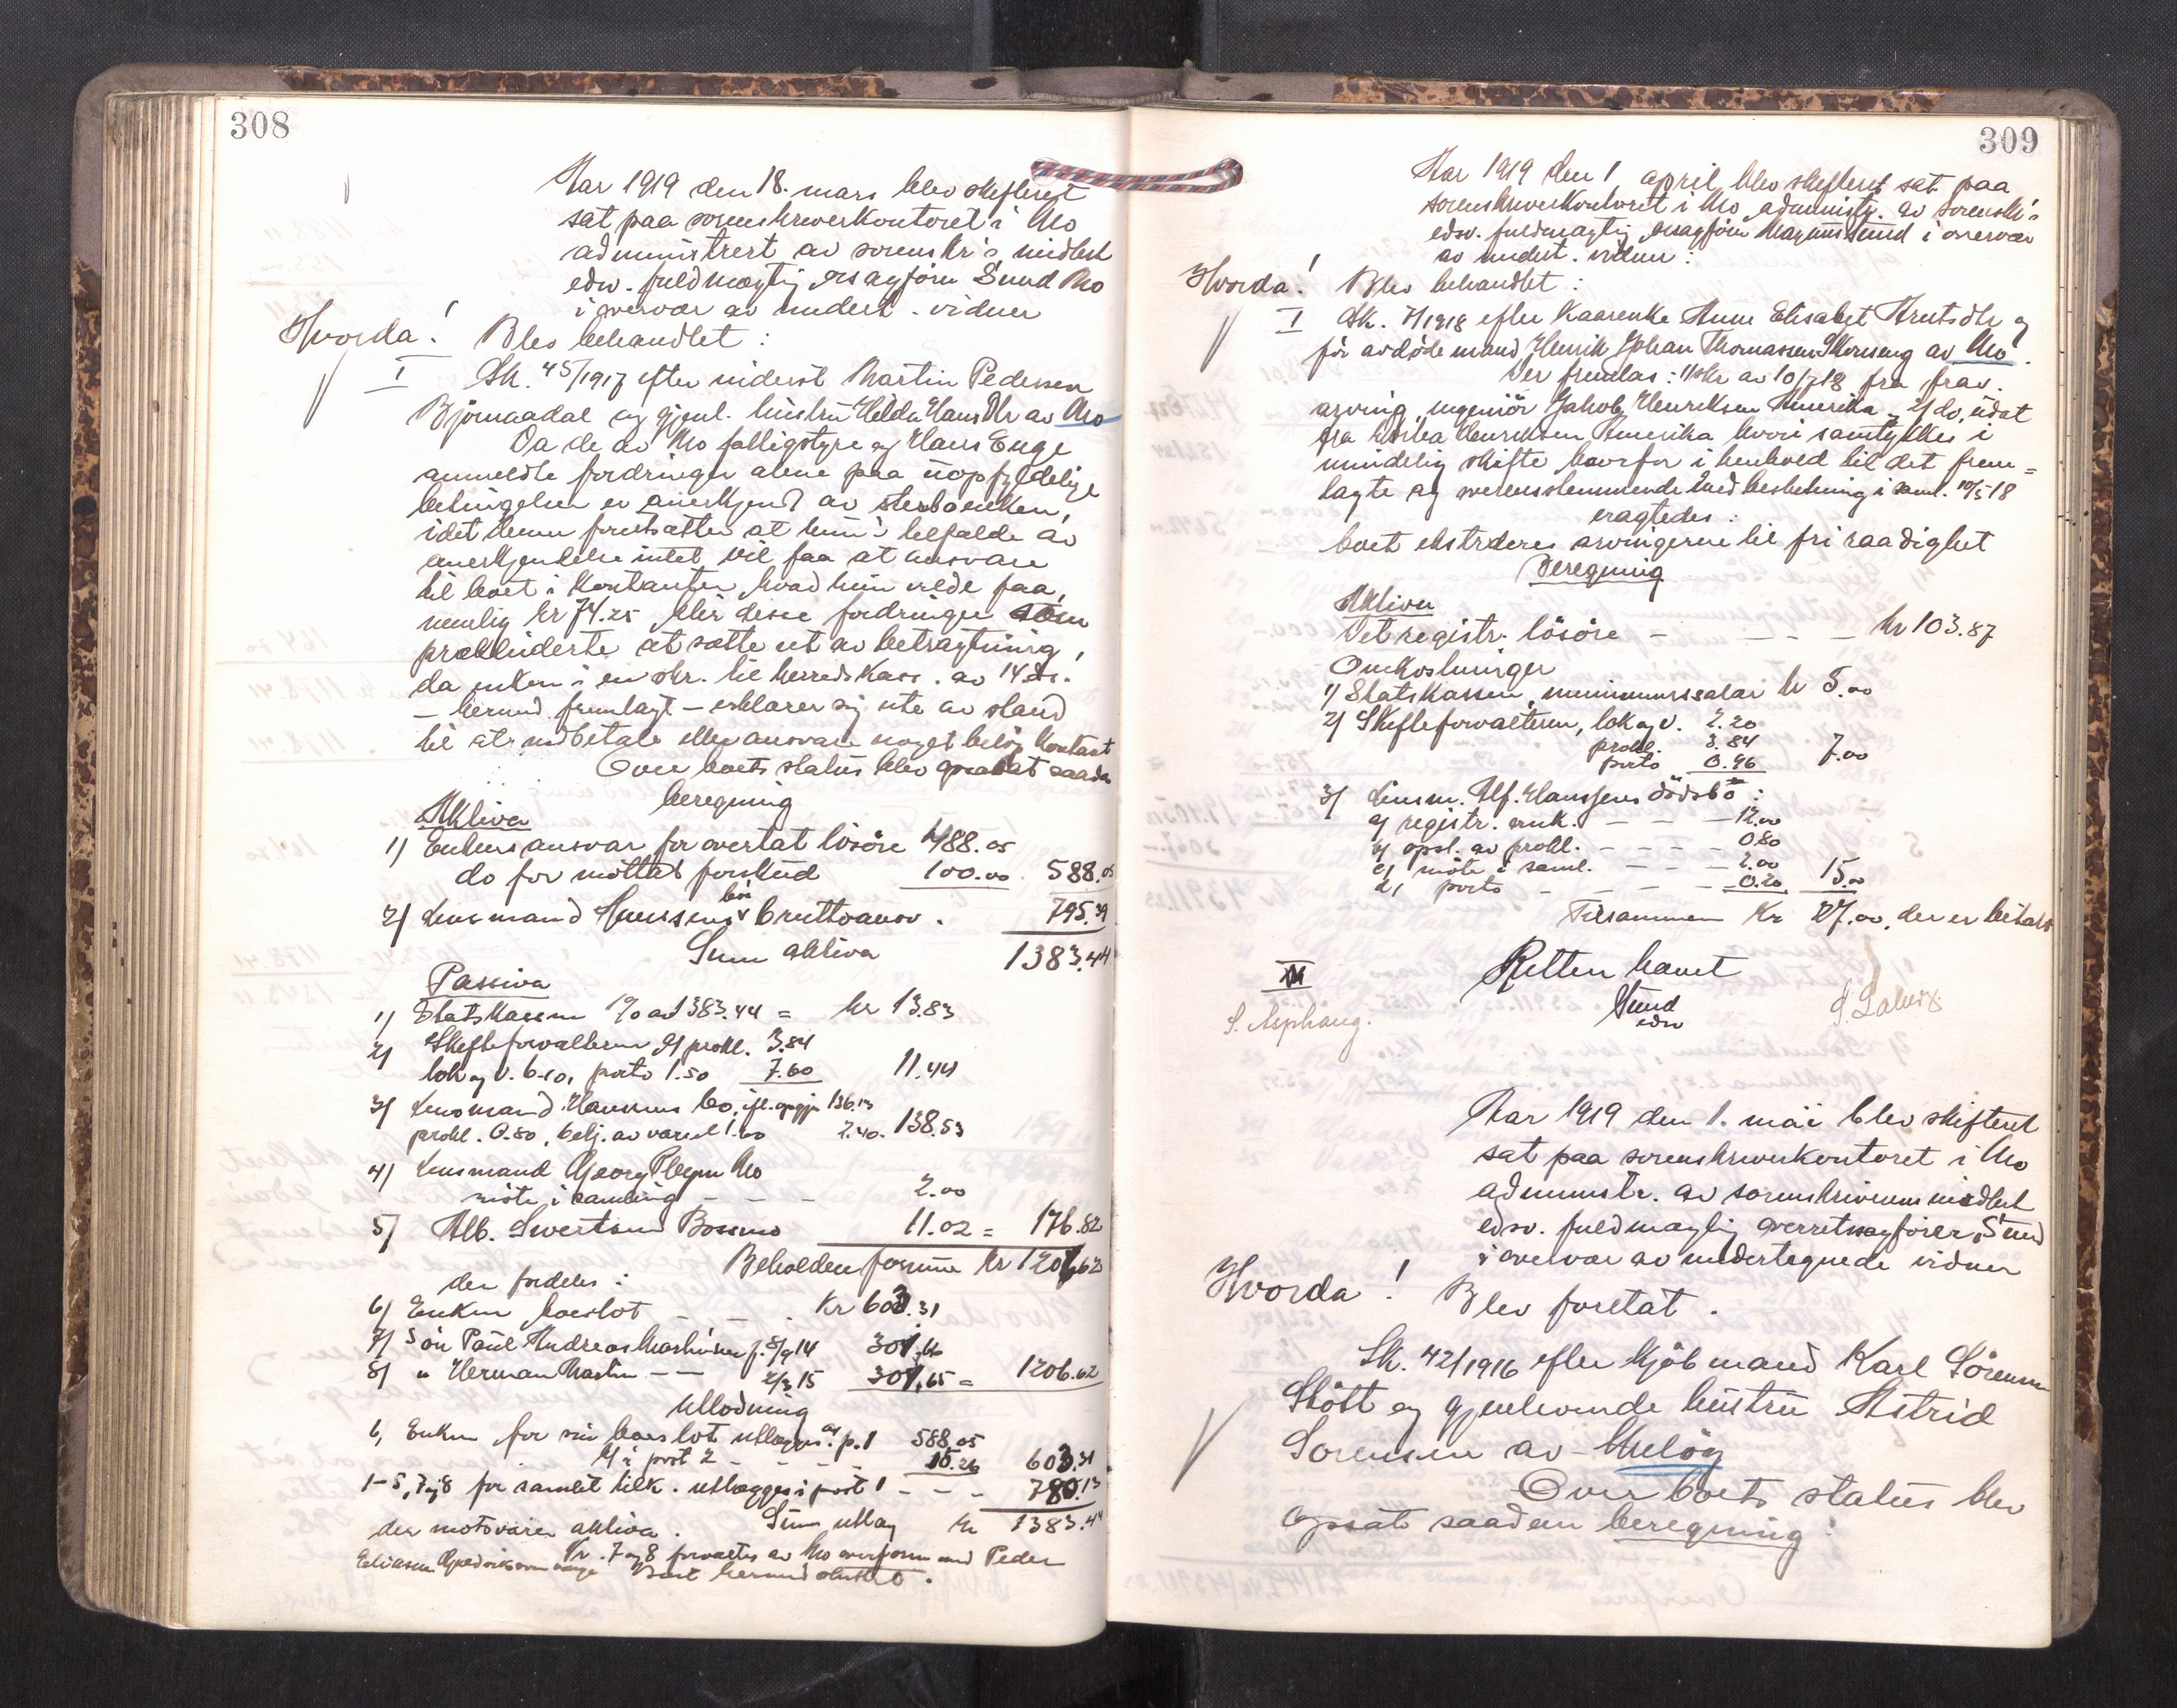 308
Aar 1919 den 18. mars blev skifteret
sat paa sorenskriverkontoret i Mo
administrert av sorenskr's midlert
edsv. fuldmægtig orsagförer Sund Mo
i overvær av undert. vidner
Hvorda! Blev behandlet:
I Sk. 45/1917 efter inderst Martin Pedersen
Björnaadal og gjenl. hustru Helda Hansdtr av Mo
Da de av Mo fattigstyre og Hans Enge
anmeldte fordringer alene paa uopfyldelige
betingelser er anerkjent av sterboenken,
idet denne forutsætter at hun i tilfælde av
anerkjendelse intet vil faa at ansvare
til boet i kontanter, hvad hun vilde faa,
nemlig kr 74.25 blir disse fordringer som
prækluderte at sætte ut av betragtning,
da enken i en skr. til herredskass. av 14 ds.
- hermed fremlagt - erklærer sig ute av stand
til at indbetale eller ansvare noget beløp kontant
Over boets status blev opsat saadan
beregning
Aktiva
1) Enkens ansvar for overtat lösöre 488.05
do for mottat forskud 100.00 588.05
2) Lensmand Hanssens bos bruttoansv. 795.39
Sum aktiva 1383.44
Passiva
1) Statskassen 1% av 1383.44 = kr 13.83
2) Skifteforvalteren 2/ prokl. 3.84
lok og v. 6.10, porto 1.50 7.60 11.44
3) Lensmand Hanssens bo, ifl. opgjør 136.13
prokl. 0.80, betj. av varsel 1.60 2.40. 138.53
4) Lensmand Georg Pleym Mo
möte i samling - - - 2.00
5) Alb. Sivertsen Bossmo 11.02 = 176.82
Beholden formue kr 1206.62
der fordeles:
6) Enken boeslot - - . Kr 603.31
7) Sön Paul Andreas Martinsen f. 8/9 14 301.66
8) " Herman Martin - - 2/3 15 301.65 = 1206.62
Utlodning
6, Enken for sin boeslot utlægges akt. p. 1 588.05
og i post 2 - - - - 15.26 603.31
1-5, 7 og 8 for samlet tilk. utlægges i post 1 - - - 780.13
Sum utlæg kr 1383.44
der motsvarer aktiva.
Nr. 7 og 8 forvaltes av Mo overform med Peder
Eliasen som verge Boet hermed sluttet.
309
Aar 1919 den 1 april blev skifteret sat paa
sorenskriverkontoret i Mo administr. av sorenskr's
edsv. fuldmægtig orsagförer Magnus Sund i overvær
av undert. vidner:
Hvorda! Blev behandlet:
I Sk. 7/1918 efter Kaarenke Anne Elisabet Arntsdtr og
för avdöde mand Henrik Johan Thomassen Skonseng av Mo.
Der fremlas: 1) skr av 10/7 18 fra frav.
arving, ingeniör Jakob Henriksen Amerika, 2) do, udat
fra Henriksen Amerika hvori samtykkes i
mindelig skifte hvorfor i henhold til det frem=
lagte og overensstemmende med beslutning i saml. 10/5 18
eragtedes:
boet ekstraderes arvingerne til fri raadighet
Beregning
Aktiva
Det registr. lösöre - - - - kr 103.87
Omkostninger
1) Statskassen, minimumssalær kr 5.00
2) Skifteforvalteren, lok og v. 2.20
prokl. 3.84
porto 0.96 7.00
3) Lensm. Alf. Hanssens dödsbo:
a) registr. m.k. - - - 12.00
b) opsl. av prokl. - - - - 0.80
c) möte i saml. - - - 2.00
d) porto - - - - 0.20 15.00
Tilsammen Kr 27.00, der er betalt
Retten hævet
Sund
edsv
S. Asphaug.
Aar 1919 den 1. mai blev skifteret
sat paa sorenskriverkontoret i Mo
administr. av sorenskriverens midlert
edsv. fuldmægtig overretssagförer Sund
i overvær av undertegnede vidner
Hvorda! Blev foretat.
Sk. 42/1916 efter kjöbmand Karl Sörensen
Stött og gjenlevende hustru Astrid
Sorensen av Melöy
Over boets status blev
opsat saadan beregning: